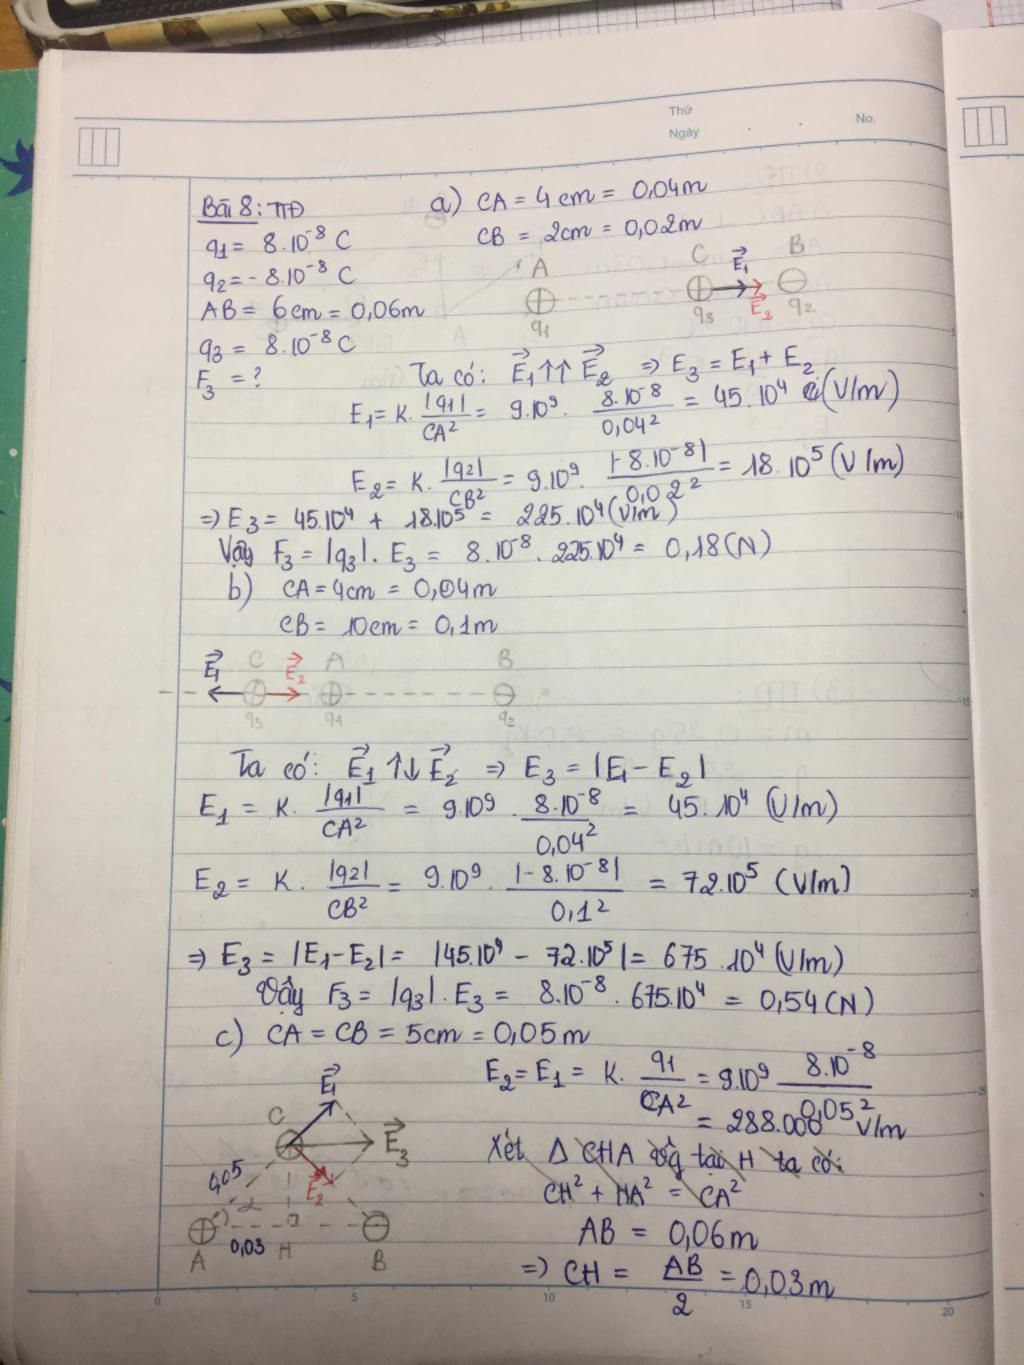 Thứ
Ngày
No.
Bài 8: TTĐ
a) CA = 4 cm = 0,04m
q1 = 8.10⁻⁸ C
CB = 2cm = 0,02m
q2 = - 8.10⁻⁸ C
A C E₁ B
AB = 6cm = 0,06m
q1 q3 E₂ q2
q3 = 8.10⁻⁸ C
F₃ = ?
Ta có: E₁ ↑↑ E₂ => E₃ = E₁ + E₂
E₁ = K. |q1|/CA² = 9.10⁹. 8.10⁻⁸/0,04² = 45.10⁴ (V/m)
E₂ = K. |q2|/CB² = 9.10⁹. |-8.10⁻⁸|/0,02² = 18.10⁵ (V/m)
=> E₃ = 45.10⁴ + 18.10⁵ = 225.10⁴ (V/m)
Vậy F₃ = |q3|. E₃ = 8.10⁻⁸. 225.10⁴ = 0,18 (N)
b) CA = 4cm = 0,04m
CB = 10cm = 0,1m
E₁ C E₂ A B
q3 q1 q2
Ta có: E₁ ↑↓ E₂ => E₃ = |E₁ - E₂|
E₁ = K. |q1|/CA² = 9.10⁹. 8.10⁻⁸/0,04² = 45.10⁴ (V/m)
E₂ = K. |q2|/CB² = 9.10⁹. |-8.10⁻⁸|/0,1² = 72.10⁵ (V/m)
=> E₃ = |E₁-E₂| = |45.10⁴ - 72.10⁵| = 675.10⁴ (V/m)
Vậy F₃ = |q3|. E₃ = 8.10⁻⁸. 675.10⁴ = 0,54 (N)
c) CA = CB = 5cm = 0,05m
E₂ = E₁ = K. q1/CA² = 9.10⁹ 8.10⁻⁸/0,05²
= 288.000 V/m
E₁
C
E₃
0,05
E₂
α
A 0,03 H B
Xét Δ CHA vg tại H ta có:
CH² + HA² = CA²
AB = 0,06m
=> CH = AB/2 = 0,03m
0 5 10 15 20